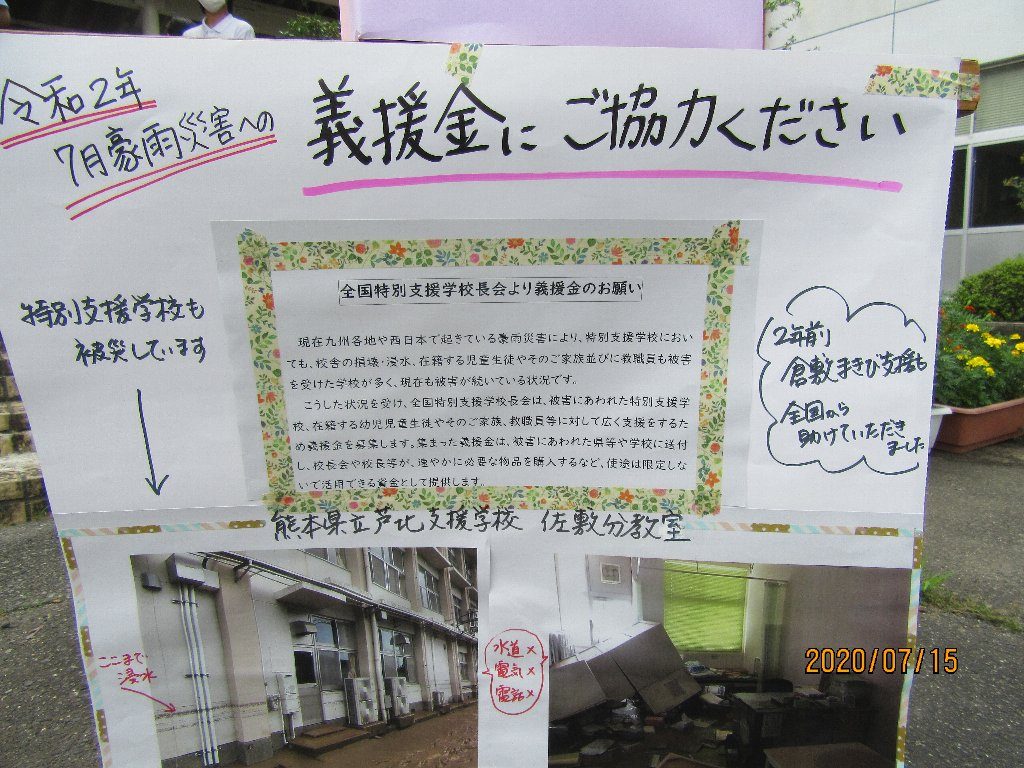 令和2年
7月豪雨災害への
義援金にご協力ください
特別支援学校も
被災しています
全国特別支援学校長会より義援金のお願い
現在九州各地や西日本で起きている豪雨災害により、特別支援学校におい
ても、校舎の損壊・浸水、在籍する児童生徒やそのご家族並びに教職員も被害
を受けた学校が多く、現在も被害が続いている状況です。
こうした状況を受け、全国特別支援学校長会は、被害にあわれた特別支援学
校、在籍する幼児児童生徒やそのご家族、教職員等に対して広く支援をするた
め義援金を募集します。集まった義援金は、被害にあわれた県等や学校に送付
し、校長会や校長等が、速やかに必要な物品を購入するなど、使途は限定しな
いで活用できる資金として提供します。
2年前
倉敷まきび支援も
全国から
助けていただき
ました
熊本県立芦北支援学校 佐敷分教室
ここまで
浸水
水道×
電気×
電話×
2020/07/15